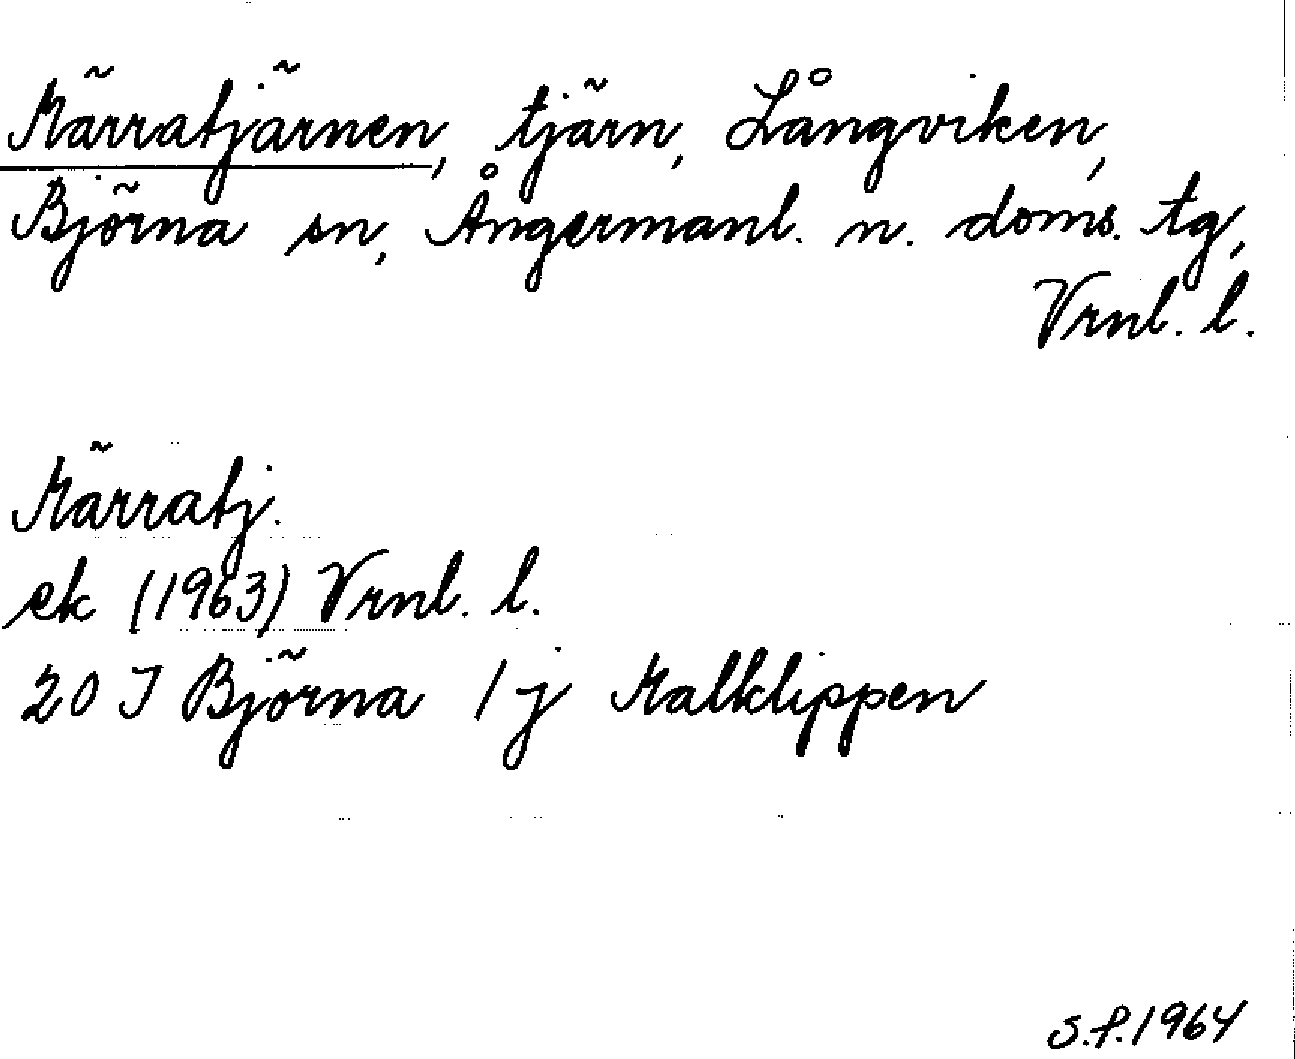 Kärratjärnen, tjärn, Långviken,
Björna sn, Ångermanl. n. doms. tg,
Vrnl. l.
Kärratj.
ek (1963) Vrnl. l.
20 J Björna 1 j Kalklippen
S.P. 1964